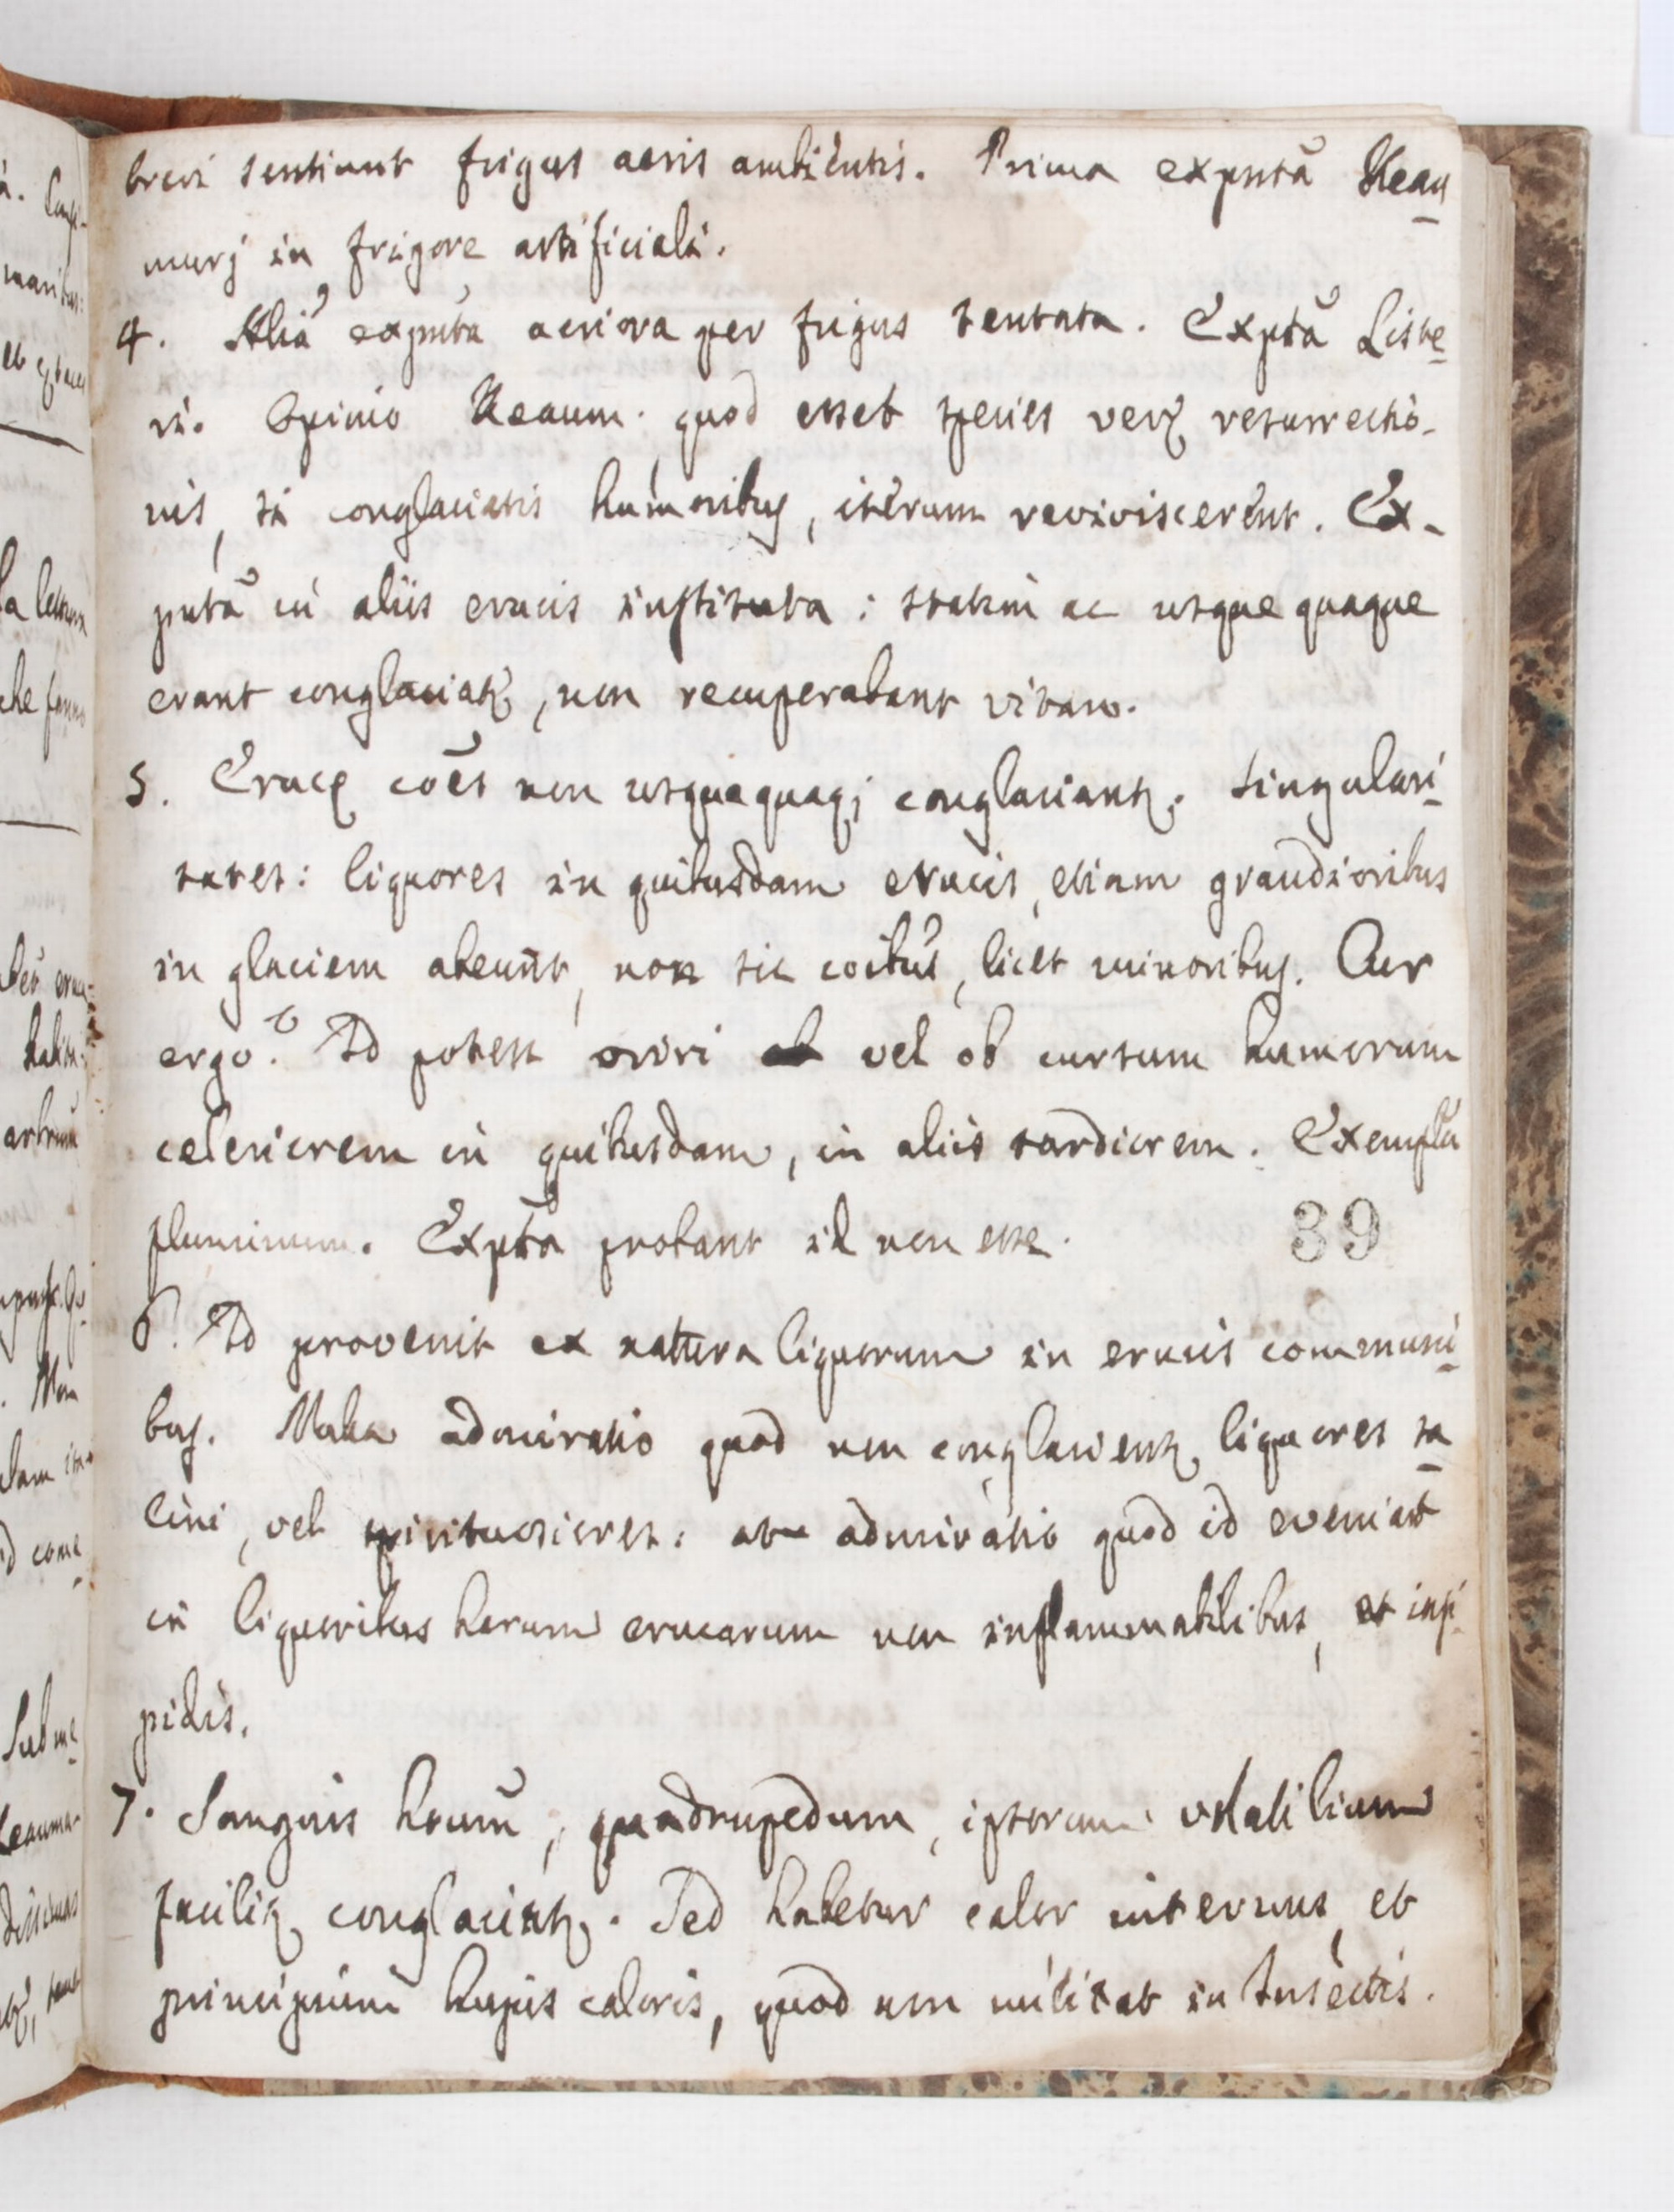 brevi sentiunt frigus aeris ambientis. Prima expnta Reau
murj in frigore artificiali.
4. Alia expnta acriora per frigus tentata. Expta Liste
ri. Opinio Reaum. quod esset species veræ resurrectio-
nis, si conglaciatis humoribus, iterum reviviscerent. Ex-
pnta in aliis erucis instituta: statim ac usque quaque
erant conglaciatæ, non recuperabant vitam.
5. Erucæ cões non usquaquaq; conglaciantr. Singulari
tates: liquores in quibusdam erucis, etiam grandioribus
in glaciem abeunt, non sic coibus, licet minoribus. Cur
ergo? Id potest oriri vel ob cursum humorum
celeriorem in quibusdam, in aliis tardiorem. Exempla
fluminum. Expta probant id non esse.
39
6. Id provenit ex natura liquorum in erucis communi
bus. Nulla admiratio quod non conglacientr liquores sa
lini, vel spirituosiores: at admiratio quod id eveniat
in liquoribus harum erucarum non inflammabilibus, et insi
pidis.
7. Sanguis hõum, quadrupedum, ipsorum volatilium
facilitr conglaciatr. Sed habetur calor internus, et
principium hujus caloris, quod non militat in Insectis.